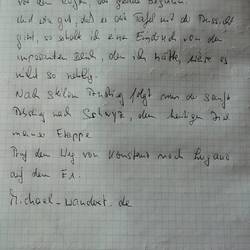 vor den Augen der
und wie gut, daß es die Tafel mit der Aussicht
gibt, so erhält ich einen Eindruck von dem
imposanten Blick, den ich hätte, wäre es
nicht so neblig.
Nach steilem Anstieg folgt nun der sanfte
Abstieg nach Schwyz, dem heutigen Ziel
meiner Etappe
Auf dem Weg von Konstanz nach Lugano
auf dem E1.
Michael-wandert.de